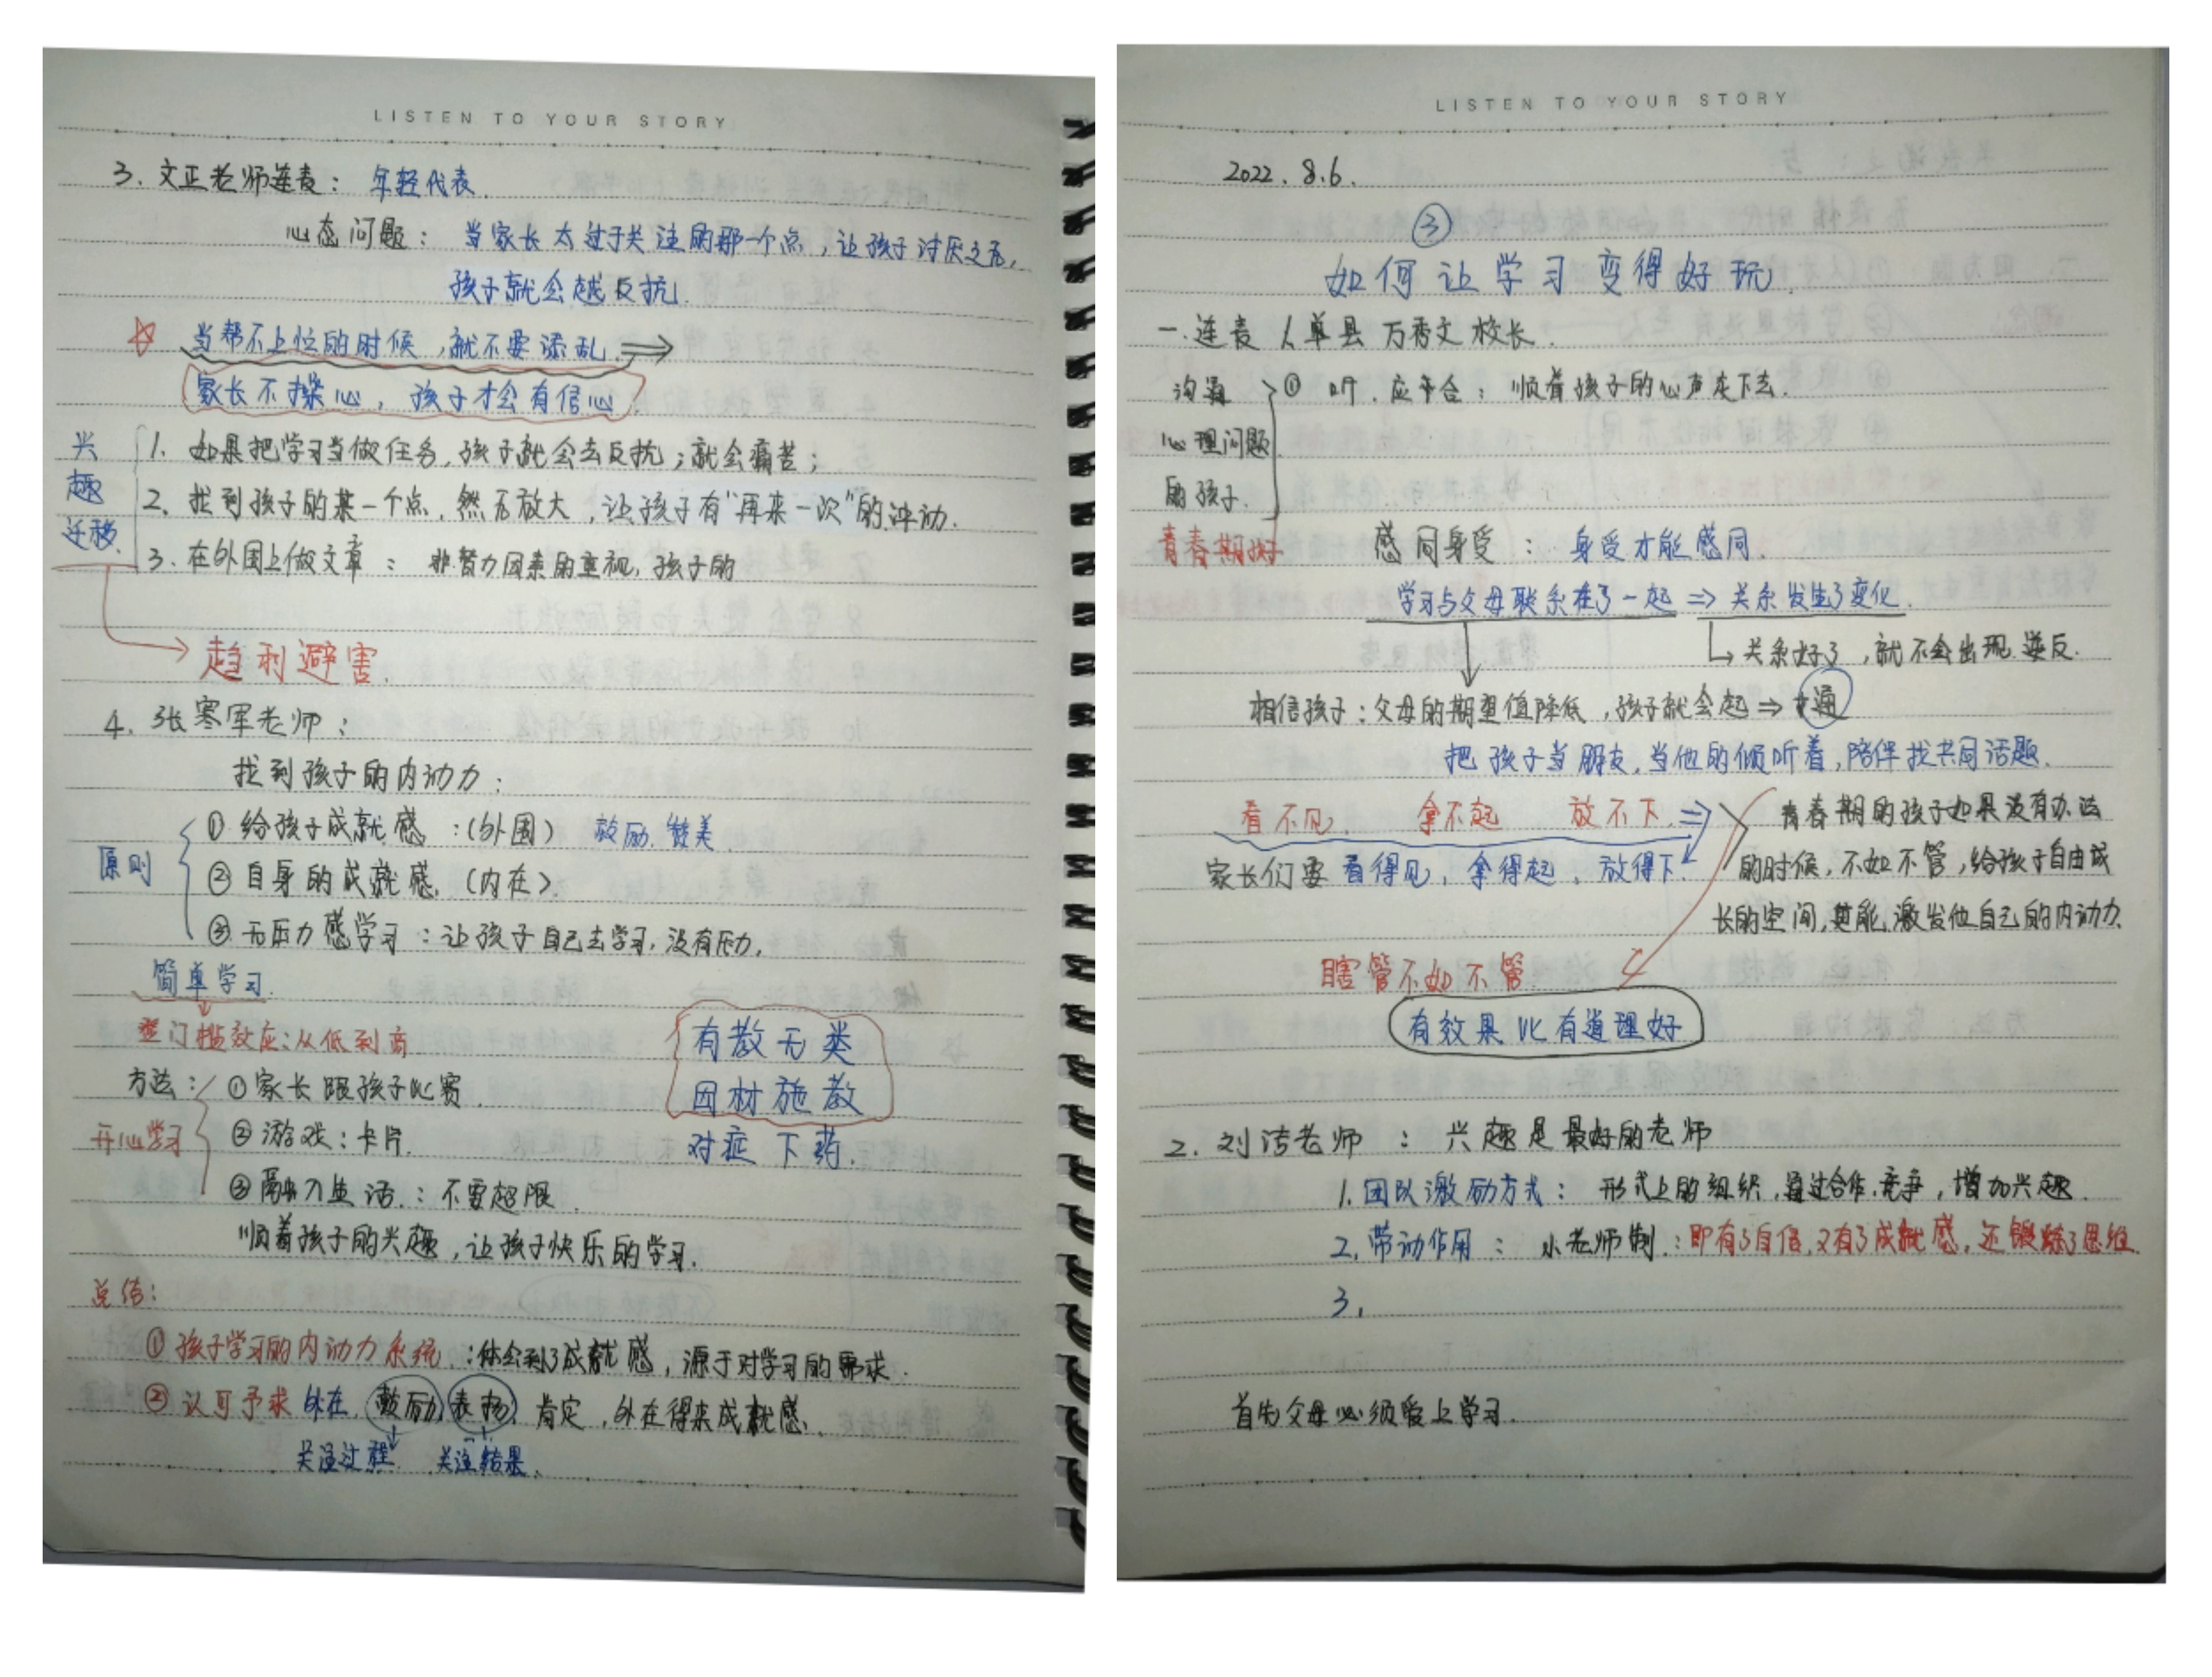 LISTEN TO YOUR STORY
3. 文正老师连麦: 年轻代表.
心态问题: 当家长太过于关注的那一个点,让孩子讨厌之后,
孩子就会越反抗.
☆ 当帮不上忙的时候,就不要添乱. ⇒
家长不操心, 孩子才会有信心
兴趣迁移.
1. 如果把学习当做任务,孩子就会去反抗;就会痛苦;
2. 找到孩子的某一个点,然后放大,让孩子有“再来一次”的冲动.
3. 在外围上做文章: 非智力因素的重视,孩子的
趋利避害.
4. 张寒军老师:
找到孩子的内动力:
原则
① 给孩子成就感:(外围) 鼓励.赞美.
② 自身的成就感.(内在).
③ 无压力感学习:让孩子自己去学习,没有压力.
简单学习.
门槛效应:从低到高
方法:
开心学习
① 家长跟孩子比赛.
② 游戏:卡片.
③ 融入生活.:不要超限.
顺着孩子的兴趣,让孩子快乐的学习.
有教无类
因材施教
对症下药.
总结:
① 孩子学习的内动力系统:体会到了成就感,源于对学习的需求.
② 认可予求 外在,鼓励,表扬,肯定,外在得来成就感.
关注过程. 关注结果.
LISTEN TO YOUR STORY
2022.8.6.
③
如何让学习变得好玩.
一.连麦人单县 万秀文校长.
沟通
心理问题
的孩子.
① 听.应.合:顺着孩子的心声走下去.
青春期
感同身受: 身受才能感同.
学习与父母联系在了一起 ⇒ 关系发生了变化.
关系好了,就不会出现逆反.
相信孩子:父母的期望值降低,孩子就会起 ⇒ 通
把孩子当朋友,当他的倾听着,陪伴找共同话题.
看不见. 拿不起 放不下. ⇒
家长们要看得见, 拿得起, 放得下.
青春期的孩子如果没有办法
的时候,不如不管,给孩子自由成
长的空间,更能激发他自己的内动力.
瞎管不如不管.
有效果比有道理好
2. 刘洁老师: 兴趣是最好的老师
1. 团队激励方式: 形式上的组织,通过合作.竞争,增加兴趣.
2. 带动作用: 小老师制:即有了自信,又有了成就感,还锻炼了思维.
3.
首先父母必须爱上学习.